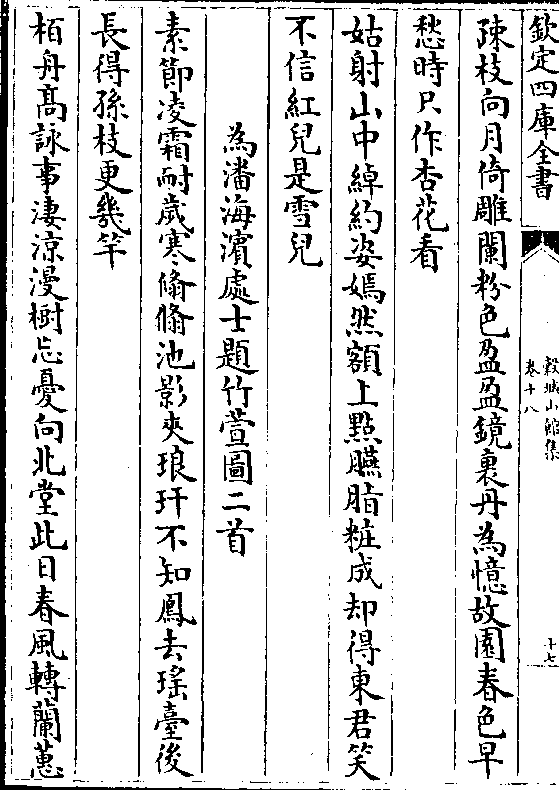 欽定四庫全書
穀城山館集
卷十八
十七
疎枝向月倚雕闌粉色盈盈鏡裏丹為憶故園春色早
愁時只作杏花看
姑射山中綽約姿嫣然額上點臙脂粧成却得東君笑
不信紅兒是雪兒
為潘海濱處士題竹萱圖二首
素節凌霜耐歲寒翛翛池影夾琅玕不知鳳去瑤臺後
長得孫枝更幾竿
栢舟髙詠事淒涼漫樹忘憂向北堂此日春風轉蘭蕙